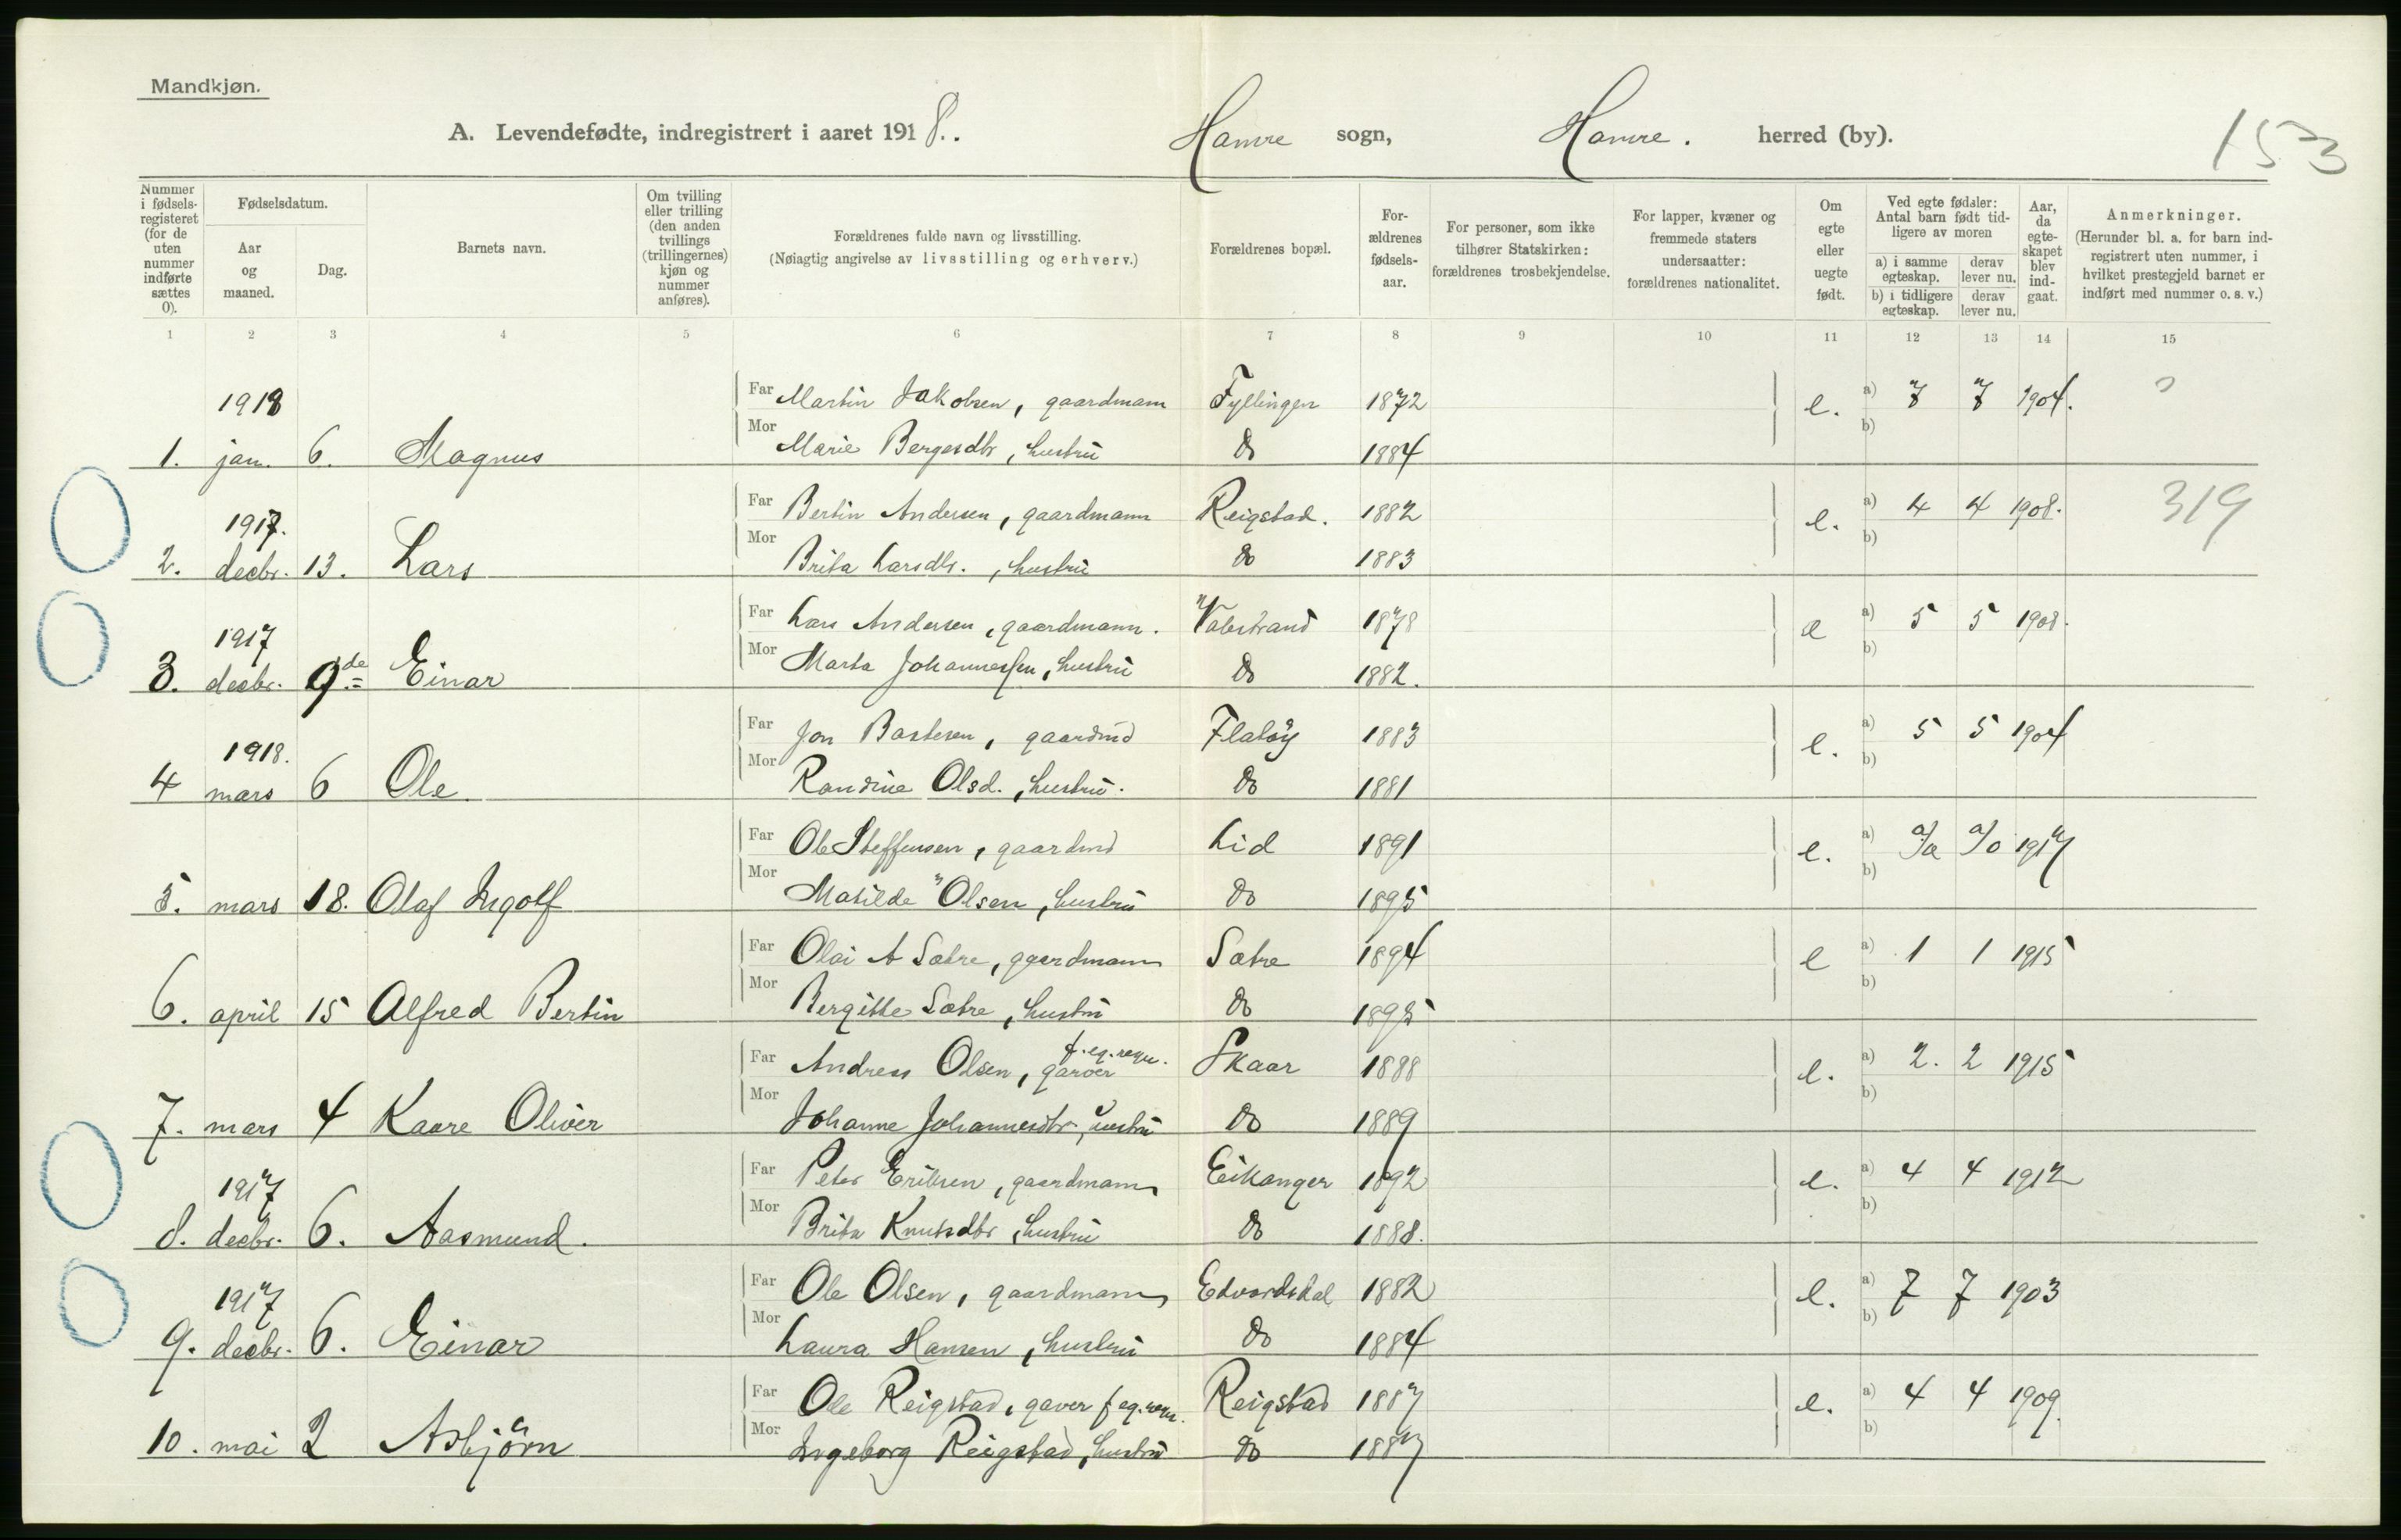 Mandkjøn.
A. Levendefødte, indregistrert i aaret 1918. Hamre sogn, Hamre. herred (by). 153
Nummer i fødsels-registeret (for de uten nummer indførte sættes 0).
Fødselsdatum.
Aar og maaned.
Dag.
Barnets navn.
Om tvilling eller trilling (den anden tvillings (trillingernes) kjøn og nummer anføres).
Forældrenes fulde navn og livsstilling.
(Nøiagtig angivelse av livsstilling og erhverv.)
Forældrenes bopæl.
For-ældrenes fødsels-aar.
For personer, som ikke tilhører Statskirken: forældrenes trosbekjendelse.
For lapper, kvæner og fremmede staters undersaatter: forældrenes nationalitet.
Om egte eller uegte født.
Ved egte fødsler: Antal barn født tid-ligere av moren
a) i samme egteskap. derav lever nu.
b) i tidligere egteskap. derav lever nu.
Aar, da egte-skapet blev ind-gaat.
Anmerkninger.
(Herunder bl. a. for barn ind-registrert uten nummer, i hvilket prestegjeld barnet er indført med nummer o. s. v.)
1 2 3 4 5 6 7 8 9 10 11 12 13 14 15
1918 Far Martin Jakobsen, gaardmann Fyllingen 1872 e. a) 7 7 1904.
1. jan. 6. Magnus Mor Marie Bergesdtr, hustru do 1884 b)
1917. Far Bertin Andersen, gaardmann Reigstad. 1882 e. a) 4 4 1908. 319
2. decbr. 13. Lars Mor Brita Larsdtr., hustru do 1883 b)
1917 Far Lars Andersen, gaardmann. Valestrand 1878 e a) 5 5 1908.
3. decbr. 9de Einar Mor Marta Johannessen, hustru do 1882. b)
1918. Far Jon Bastesen, gaardmd Flatøy 1883 e. a) 5 5 1904
4 mars 6 Ole Mor Randine Olsd., hustru. do 1881 b)
Far Ole Steffensen, gaardmd Lid 1891 e. a) 1917
5. mars 18. Olaf Ingolf Mor Matilde Olsen, hustru do 1895 b)
Far Olai A Sætre, gaardmann Sætre 1894 e a) 1 1 1915
6. april 15 Alfred Bertin Mor Bergitte Sætre, hustru do 1895 b)
Far Andreas Olsen, garver f. eg. regn. Skaar 1888 e. a) 2. 2 1915
7. mars 4 Kaare Oliver Mor Johanne Johannesdtr., hustru do 1889 b)
1917 Far Peter Eriksen, gaardmann Eikanger 1892 e. a) 4 4 1912
8. decbr. 6. Aasmund. Mor Brita Knutsdtr, hustru do 1888. b)
1917 Far Ole Olsen, gaardmann Edvardsdal 1882 e. a) 7 7 1903
9. decbr. 6. Einar Mor Laura Hansen, hustru do 1884 b)
Far Ole Reigstad, garver f eg. regn. Reigstad 1887 e. a) 4 4 1909
10. mai 2 Asbjörn Mor Ingeborg Reigstad, hustru do 1887 b)